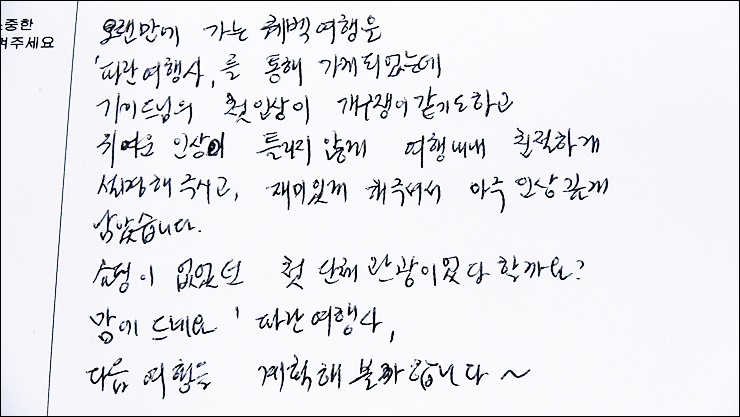 소중한
겨주세요
오랜만에 가는 퀘벡여행을
'파란여행사'를 통해 가게되었는데
가이드님의 첫인상이 개구쟁이같기도하고
귀여운 인상이 틀리지 않게 여행내내 친절하게
설명해주시고, 재미있게 해주셔서 아주 인상깊게
남았습니다.
쇼핑이 없었던 첫 단체 관광이었다 할까요?
맘에 드네요 '파란여행사'
다음 여행을 계획해 볼까합니다~